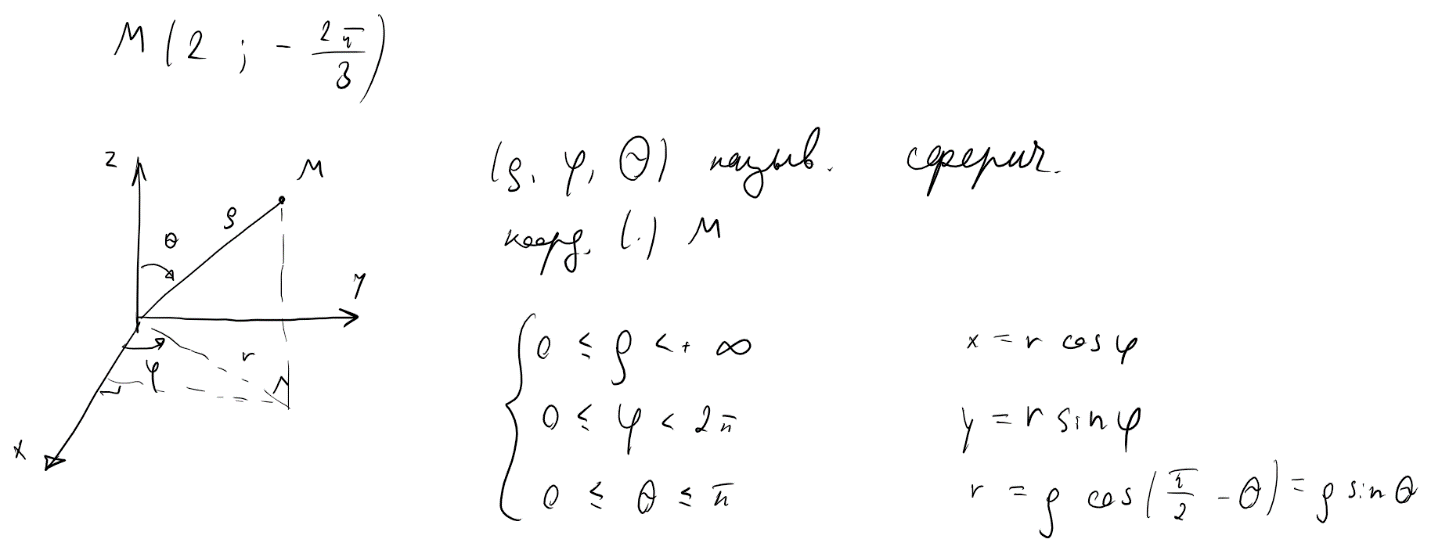 M(2 ; - 2π/3)
z
M
ρ
θ
y
r
φ
x
(ρ, φ, θ) назыв. сферич.
коорд. (.) M
0 ≤ ρ < + ∞
0 ≤ φ < 2π
0 ≤ θ ≤ π
x = r cos φ
y = r sin φ
r = ρ cos(π/2 - θ) = ρ sin θ